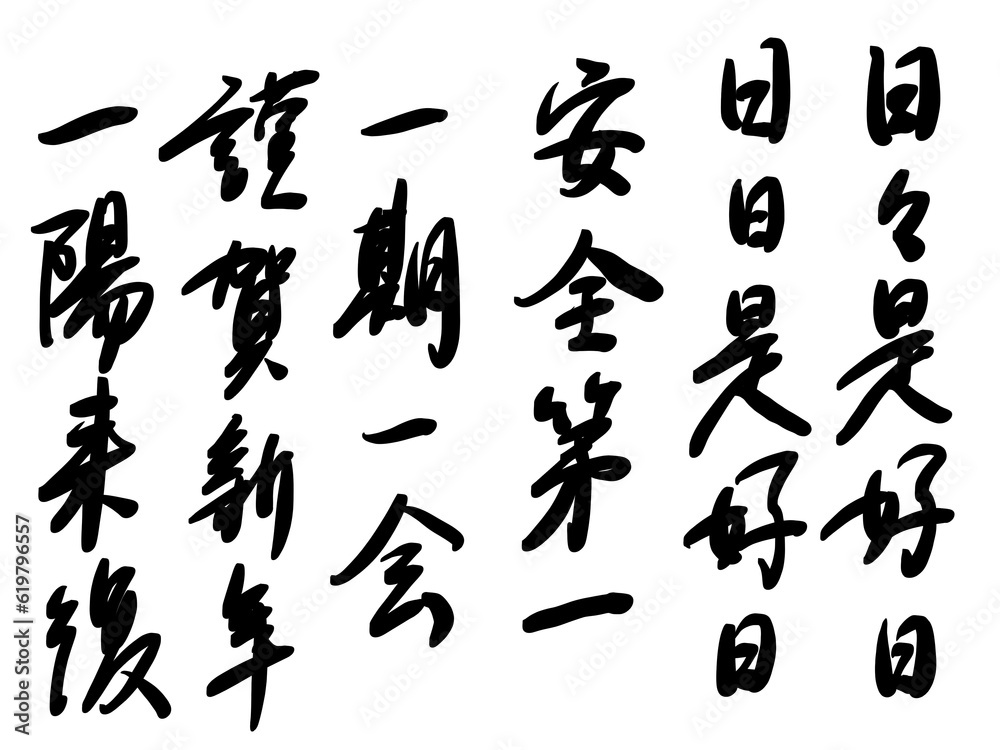 日々是好日
日日是好日
安全第一
一期一会
謹賀新年
一陽来復
Adobe Stock | #619796557